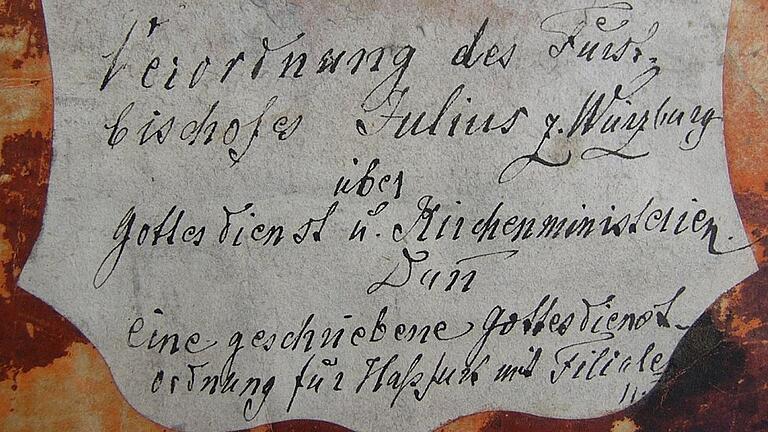 Verordnung des Fürst-
bischofes Julius z. Würzburg
über
Gottesdienst u. Kirchenministerien.
Dan̄
eine geschriebene Gottesdienst-
ordnung für Haßfurt mit Filiale